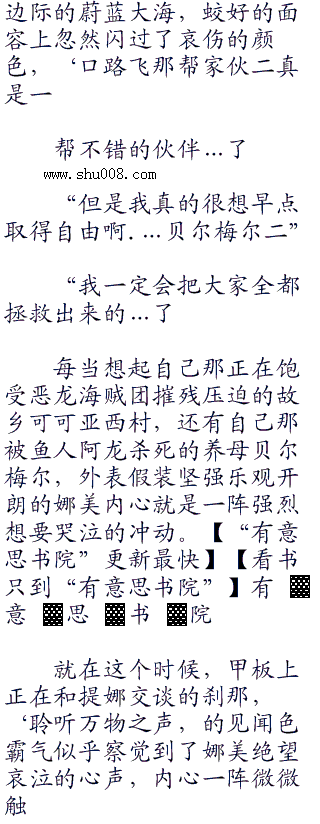 边际的蔚蓝大海，姣好的面
容上忽然闪过了哀伤的颜
色，‘口路飞那帮家伙二真
是一
帮不错的伙伴…了
www.shu008.com
“但是我真的很想早点
取得自由啊.…贝尔梅尔二”
“我一定会把大家全都
拯救出来的…了
每当想起自己那正在饱
受恶龙海贼团摧残压迫的故
乡可可亚西村，还有自己那
被鱼人阿龙杀死的养母贝尔
梅尔，外表假装坚强乐观开
朗的娜美内心就是一阵强烈
想要哭泣的冲动。【“有意
思书院”更新最快】【看书
只到“有意思书院”】有 ▓
意 ▓思 ▓书 ▓院
就在这个时候，甲板上
正在和提娜交谈的刹那，
‘聆听万物之声，的见闻色
霸气似乎察觉到了娜美绝望
哀泣的心声，内心一阵微微
触